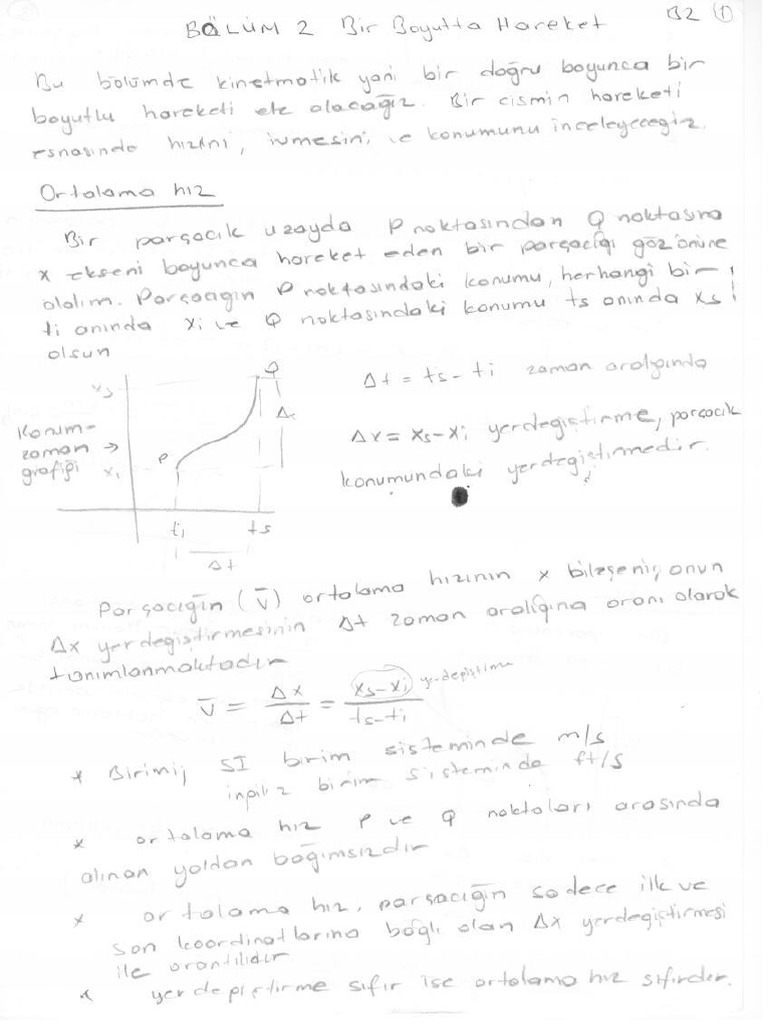 BÖLÜM 2 Bir Boyutta Hareket B2 (1)
Bu bölümde kinetmatik yani bir doğru boyunca bir
boyutlu hareketi ele alacağız. Bir cismin hareketi
esnasında hızını, ivmesini ve konumunu inceleyeceğiz.
Ortalama hız
Bir parçacık uzayda P noktasından Q noktasına
x ekseni boyunca hareket eden bir parçacığı göz önüne
alalım. Parçacığın P noktasındaki konumu, herhangi bir
ti anında xi ve Q noktasındaki konumu ts anında xs
olsun
Q
xs
Δx
Konum-
zaman →
grafiği
P
xi
ti ts
Δt
Δt = ts - ti zaman aralığında
Δx = xs - xi yerdegiştirme, parçacık
konumundaki yerdegiştirmedir.
Parçacığın (v̄) ortalama hızının x bileşeni, onun
Δx yerdegiştirmesinin Δt zaman aralığına oranı olarak
tanımlanmaktadır
v̄ = Δx / Δt = (xs - xi) / (ts - ti) yerdegiştirme
* Birimi; SI birim sisteminde m/s
ingiliz birim sisteminde ft/s
* ortalama hız P ve Q noktaları arasında
alınan yoldan bağımsızdır
* ortalama hız, parçacığın sadece ilk ve
son koordinatlarına bağlı olan Δx yerdegiştirmesi
ile orantılıdır
* yerdegiştirme sıfır ise ortalama hız sıfırdır.